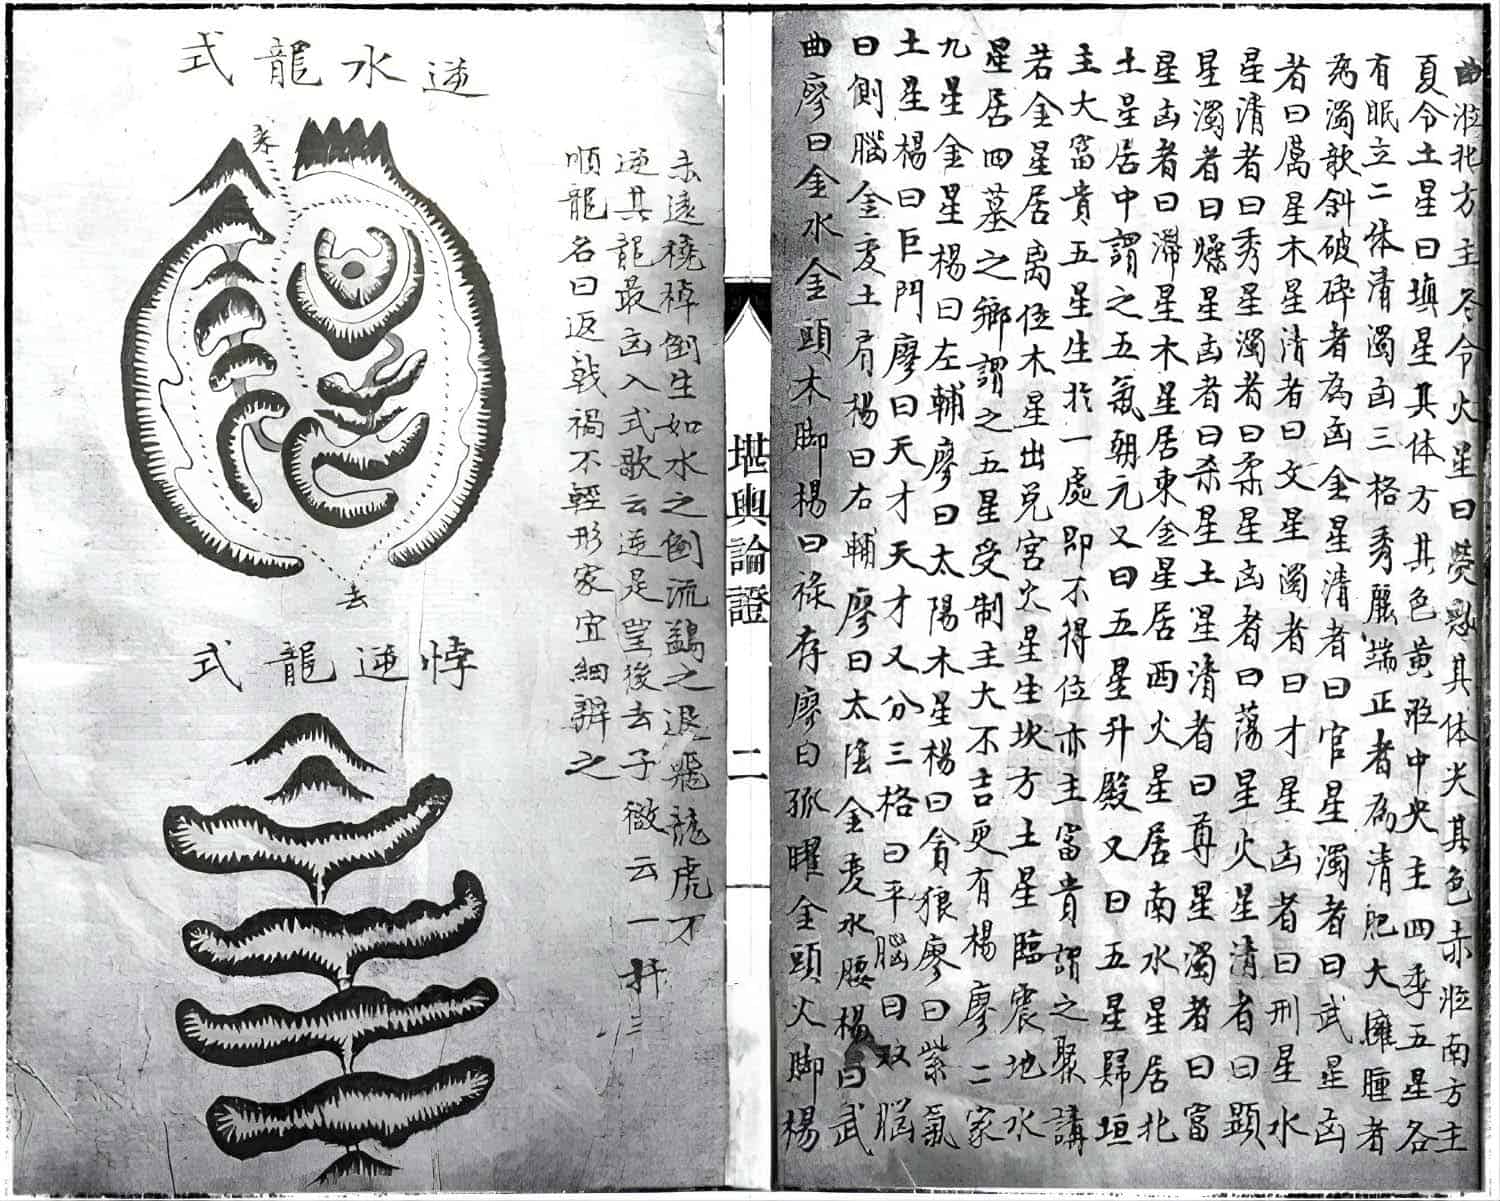 曲涖北方主冬令火星曰熒惑其体尖其色赤涖南方主
夏令土星曰填星其体方其色黄涖中央主四季五星各
有眠立二体清濁凶三格秀麗端正者為清肥大臃腫者
為濁欹斜破碎者為凶金星清者曰官星濁者曰武星凶
者曰厲星木星清者曰文星濁者曰才星凶者曰刑星水
星清者曰秀星濁者曰柔星凶者曰蕩星火星清者曰顕
星濁者曰燥星凶者曰杀星土星清者曰尊星濁者曰富
星凶者曰滯星木星居東金星居西火星居南水星居北
土星居中謂之五氣朝元又曰五星升殿又曰五星歸垣
主大富貴五星生於一處即不得位亦主富貴謂之聚講
若金星居离位木星出兑宮火星生坎方土星臨震地水
星居四墓之鄉謂之五星受制主大不吉更有楊廖二家
九星金星楊曰左輔廖曰太陽木星楊曰貪狼廖曰紫氣
土星楊曰巨門廖曰天才天才又分三格曰平腦曰双腦
曰側腦金変土肩楊曰右輔廖曰太陰金変水腰楊曰武
曲廖曰金水金頭木脚楊曰祿存廖曰孤曜金頭火脚楊
堪輿論證
二
逆水龍式
来
去
悖逆龍式
未遠橈棹倒生如水之倒流鷁之退飛龍虎不
逆其龍最凶入式歌云逆是望後去子微云一
順龍名曰返戟禍不輕形家宜細辨之